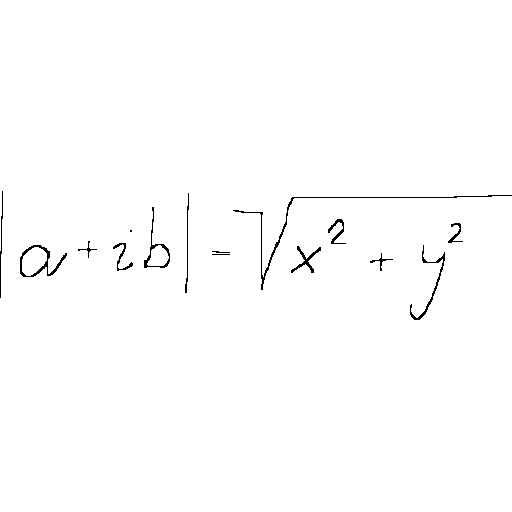 |a + ib| = √x² + y²